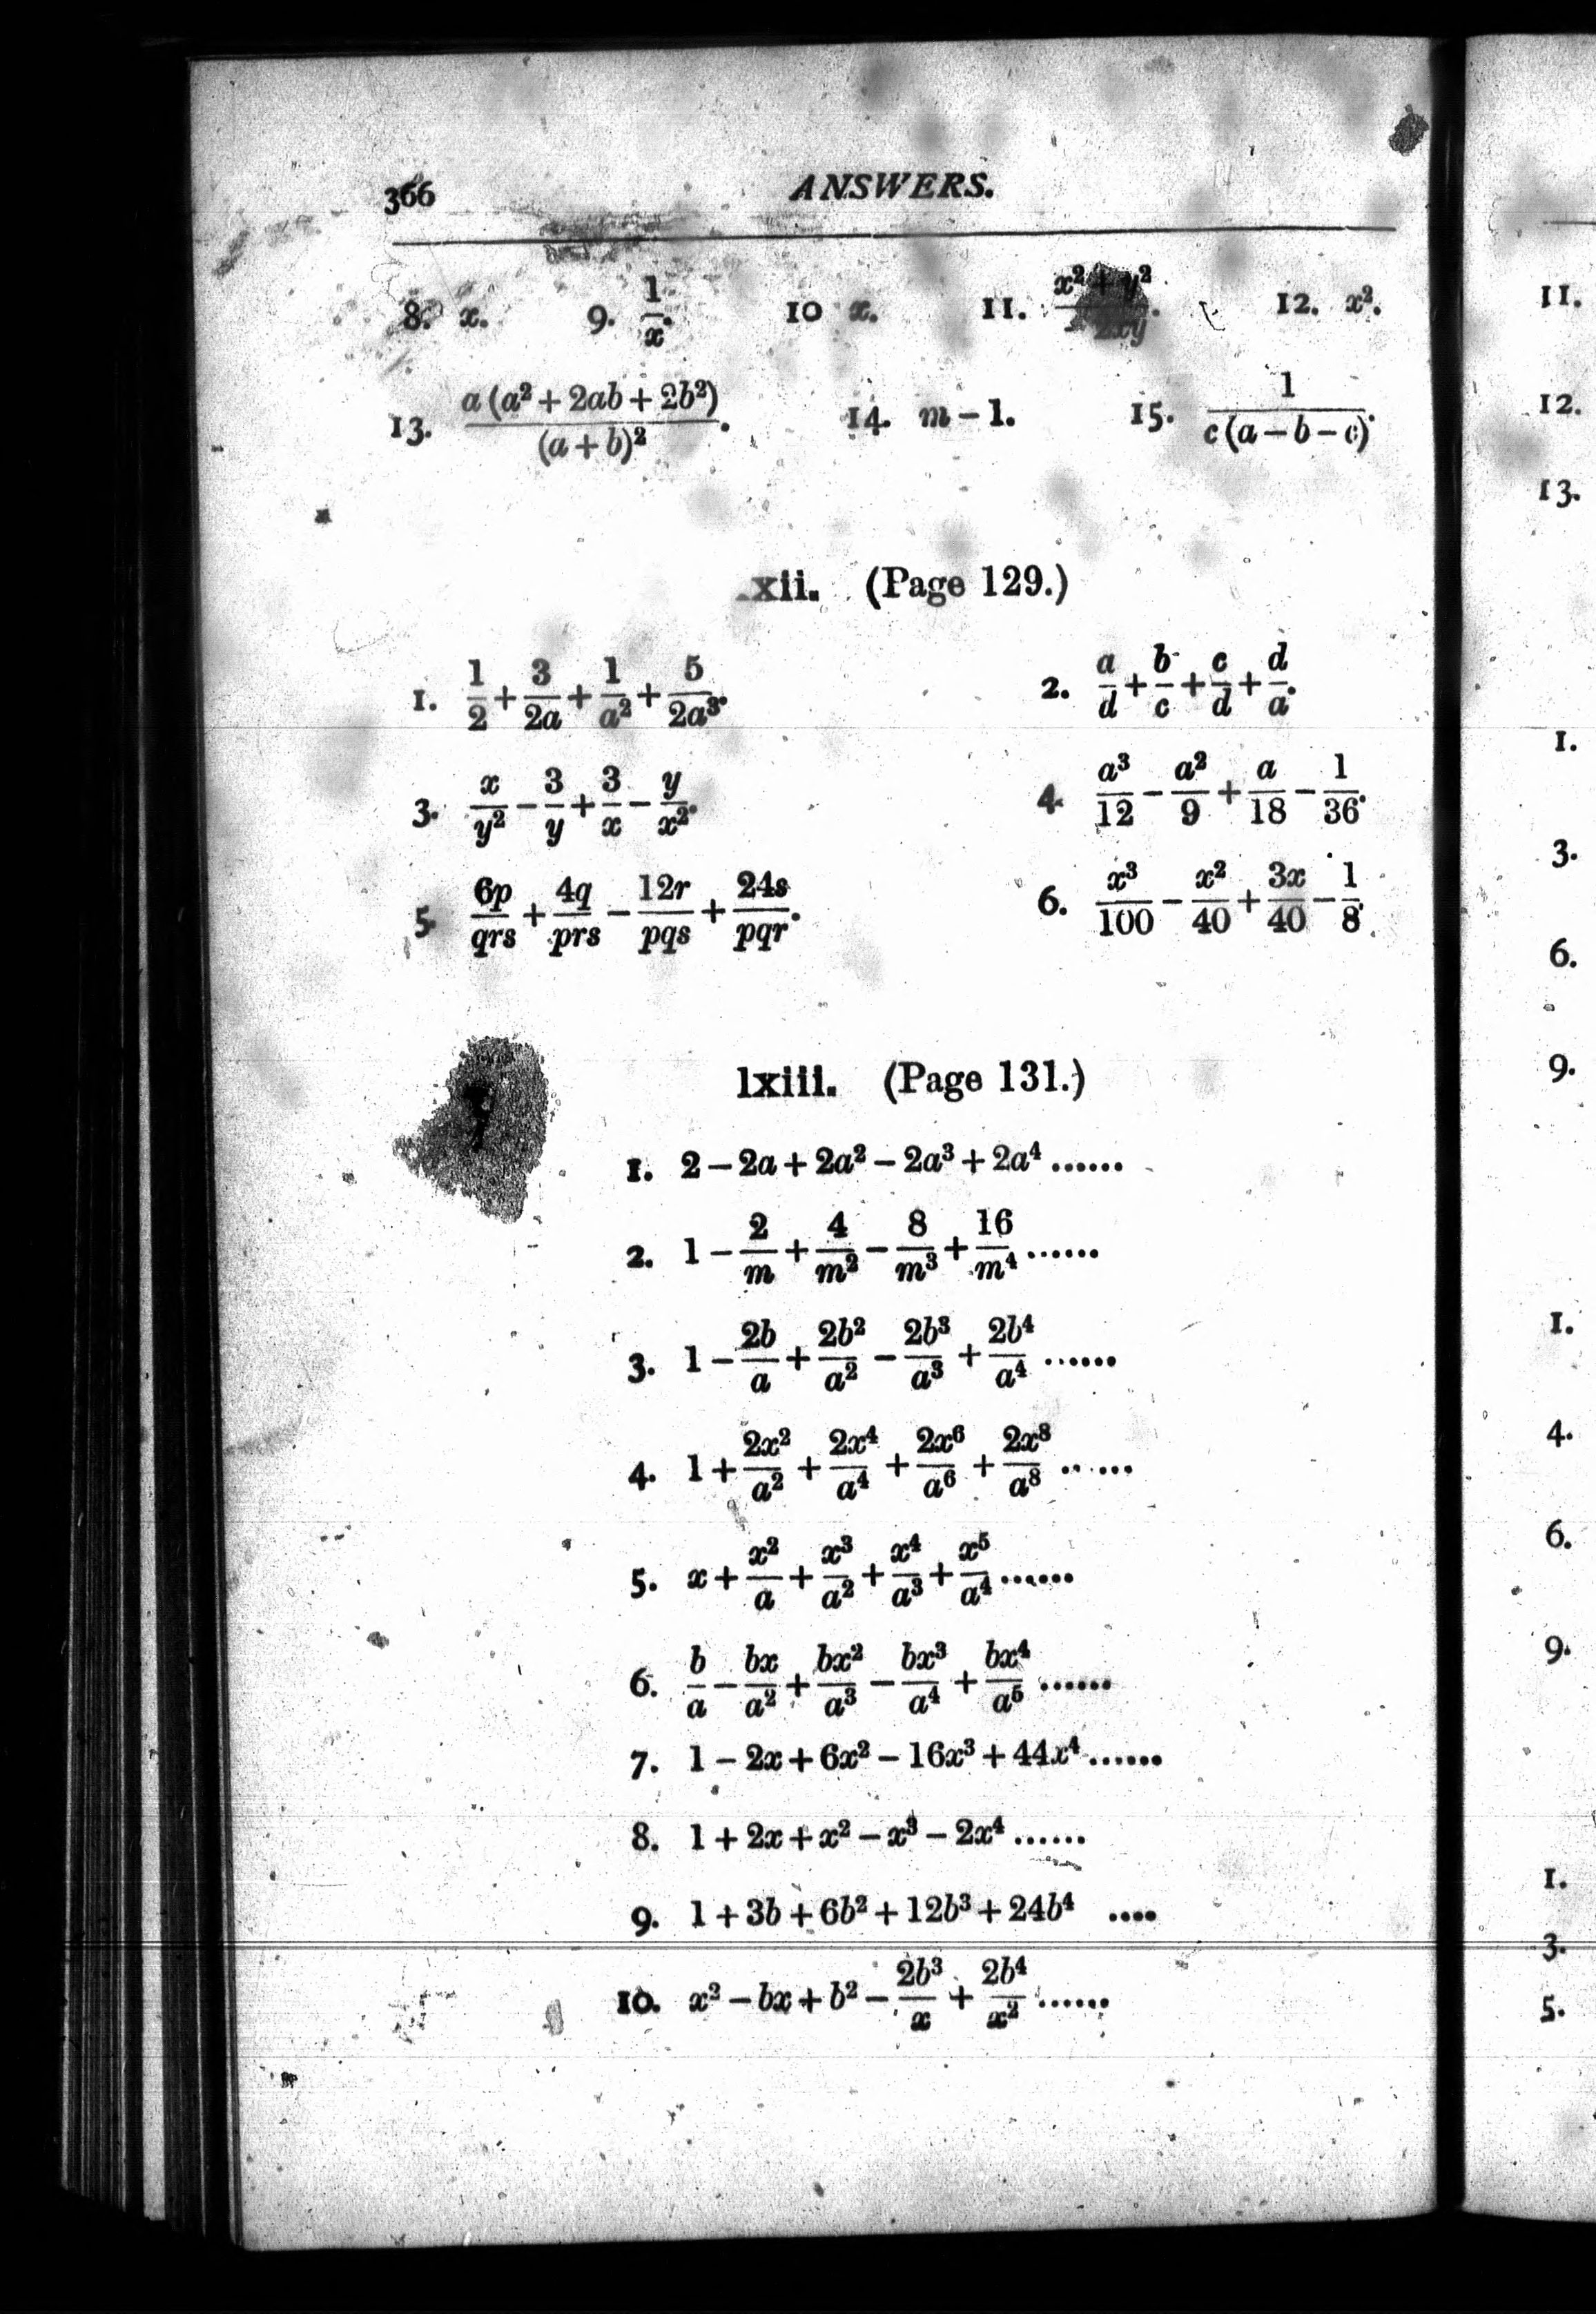 366 ANSWERS.
8. x. 9. 1/x. 10 x. 11. (x² + y²)/2xy. 12. x².
13. a (a² + 2ab + 2b²)/(a + b)². 14. m − 1. 15. 1/c (a − b − c).
xii. (Page 129.)
1. 1/2 + 3/2a + 1/a² + 5/2a³. 2. a/d + b/c + c/d + d/a.
3. x/y² − 3/y + 3/x − y/x². 4. a³/12 − a²/9 + a/18 − 1/36.
5. 6p/qrs + 4q/prs − 12r/pqs + 24s/pqr. 6. x³/100 − x²/40 + 3x/40 − 1/8.
lxiii. (Page 131.)
1. 2 − 2a + 2a² − 2a³ + 2a⁴ ......
2. 1 − 2/m + 4/m² − 8/m³ + 16/m⁴ ......
3. 1 − 2b/a + 2b²/a² − 2b³/a³ + 2b⁴/a⁴ ......
4. 1 + 2x²/a² + 2x⁴/a⁴ + 2x⁶/a⁶ + 2x⁸/a⁸ ......
5. x + x²/a + x³/a² + x⁴/a³ + x⁵/a⁴ ......
6. b/a − bx/a² + bx²/a³ − bx³/a⁴ + bx⁴/a⁵ ......
7. 1 − 2x + 6x² − 16x³ + 44x⁴ ......
8. 1 + 2x + x² − x³ − 2x⁴ ......
9. 1 + 3b + 6b² + 12b³ + 24b⁴ ....
10. x² − bx + b² − 2b³/x + 2b⁴/x² ......
11.
12.
13.
1.
3.
6.
9.
1.
4.
6.
9.
1.
3.
5.